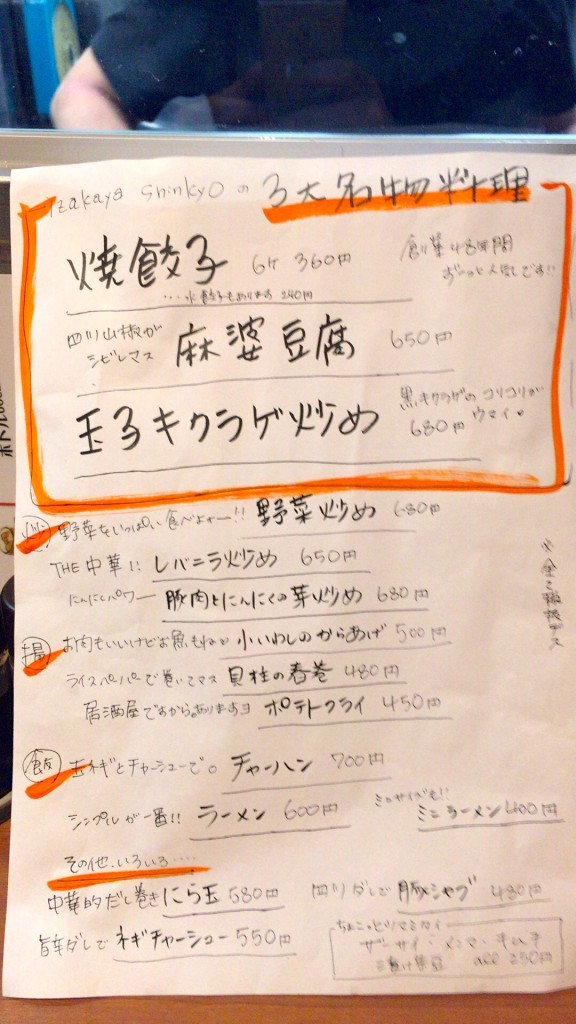 Izakaya ShinkyOの 3大名物料理
焼餃子 6ケ 360円
創業48年間
ずーっと人気です!!
…水餃子もあります 340円
四川山椒が
シビレマス
麻婆豆腐 650円
玉子キクラゲ炒め 680円
黒キクラゲのコリコリが
ウマイ
炒 野菜をいっぱい食べよォー!! 野菜炒め 680円
THE 中華!! レバニラ炒め 650円
にんにくパワー 豚肉とにんにくの芽炒め 680円
揚 お肉もいいけどお魚もねっ 小いわしのからあげ 500円
ライスペーパーで巻いてマス 貝柱の春巻 480円
居酒屋ですから。ありますヨ ポテトフライ 450円
飯 玉ネギとチャーシューで。 チャーハン 700円
シンプルが一番!! ラーメン 600円
ミニサイズも!!
ミニラーメン 400円
その他、いろいろ‥‥
中華的だし巻き にら玉 580円
四川ダレで 豚シャブ 480円
旨辛ダレで ネギチャーシュー 550円
ちょこっとツマミタイ
ザーサイ・メンマ・キムチ
all 250円
※全て税抜デス
ボトル